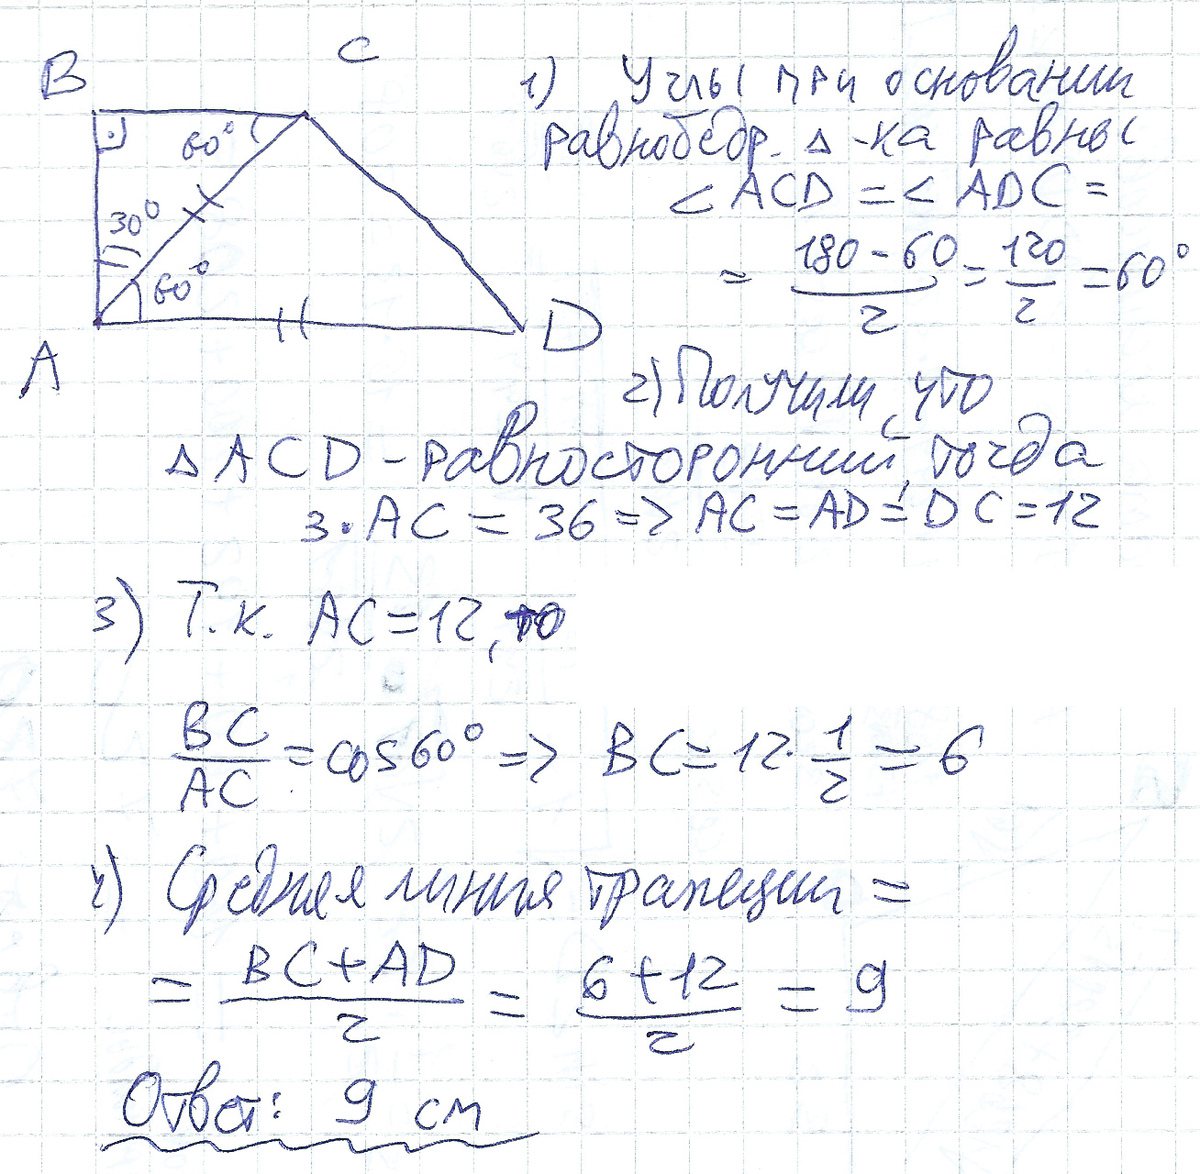 B
C
60°
30°
60°
A
D
1) Углы при основании
равнобедр. Δ-ка равны
< ACD = < ADC =
= (180 - 60)/2 = 120/2 = 60°
2) Получили, что
Δ ACD - равносторонний, тогда
3·AC = 36 => AC = AD = DC = 12
3) Т.к. AC = 12, то
BC/AC = cos 60° => BC = 12·1/2 = 6
4) Средняя линия трапеции =
= (BC + AD)/2 = (6 + 12)/2 = 9
Ответ: 9 см